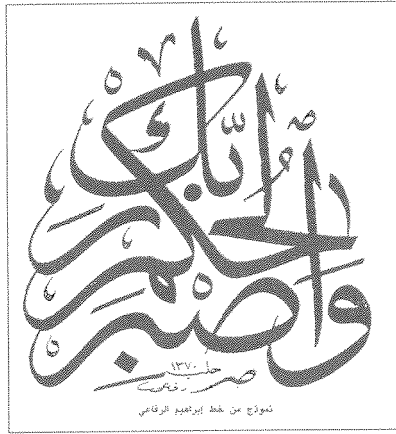 وَٱصْبِرْ لِحُكْمِ رَبِّكَ
١٣٧٠
حلب
نموذج من خط إبراهيم الرفاعي